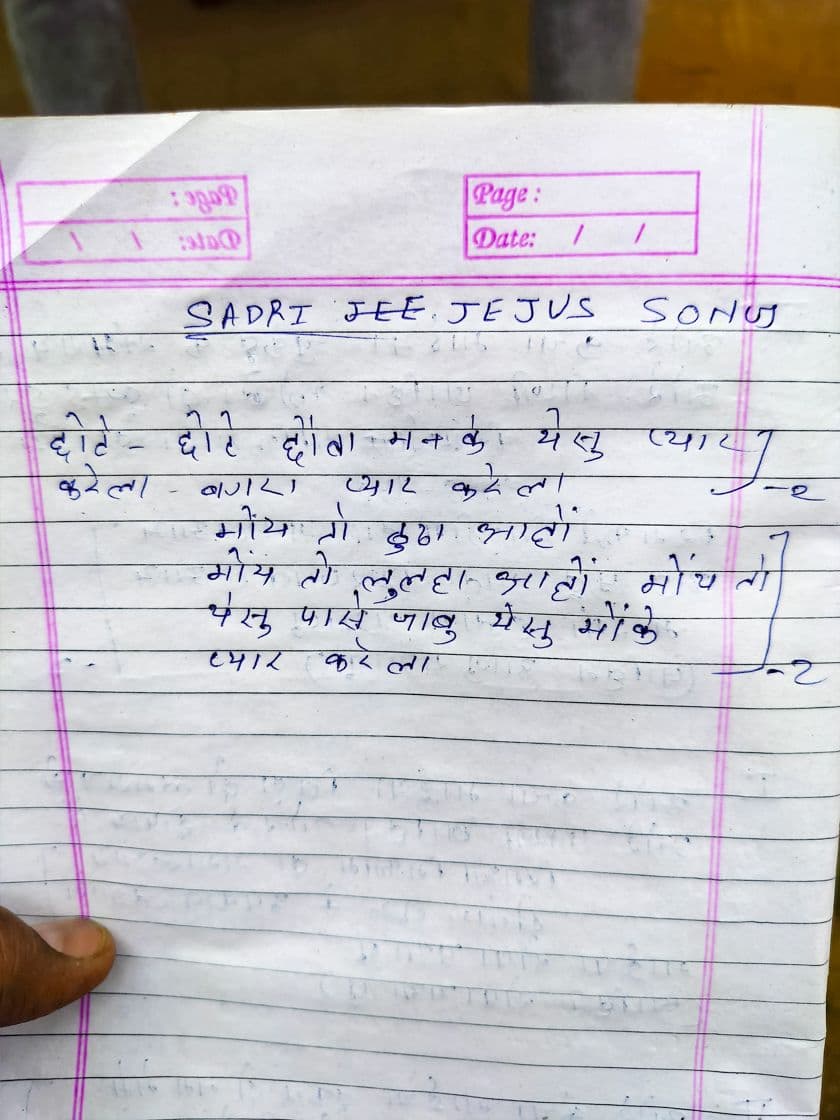 Page :
Date: / /
SADRI JEE. JEJUS SONG
छोटे - छोटे छौवा मन के येसु प्यार
करेला - बगरा प्यार करेला -2
मोंय तो आहों
मोंय तो लुलहा आहों मोंय तो
येसु पासे जाबु येसु मोंके
प्यार करेला -2